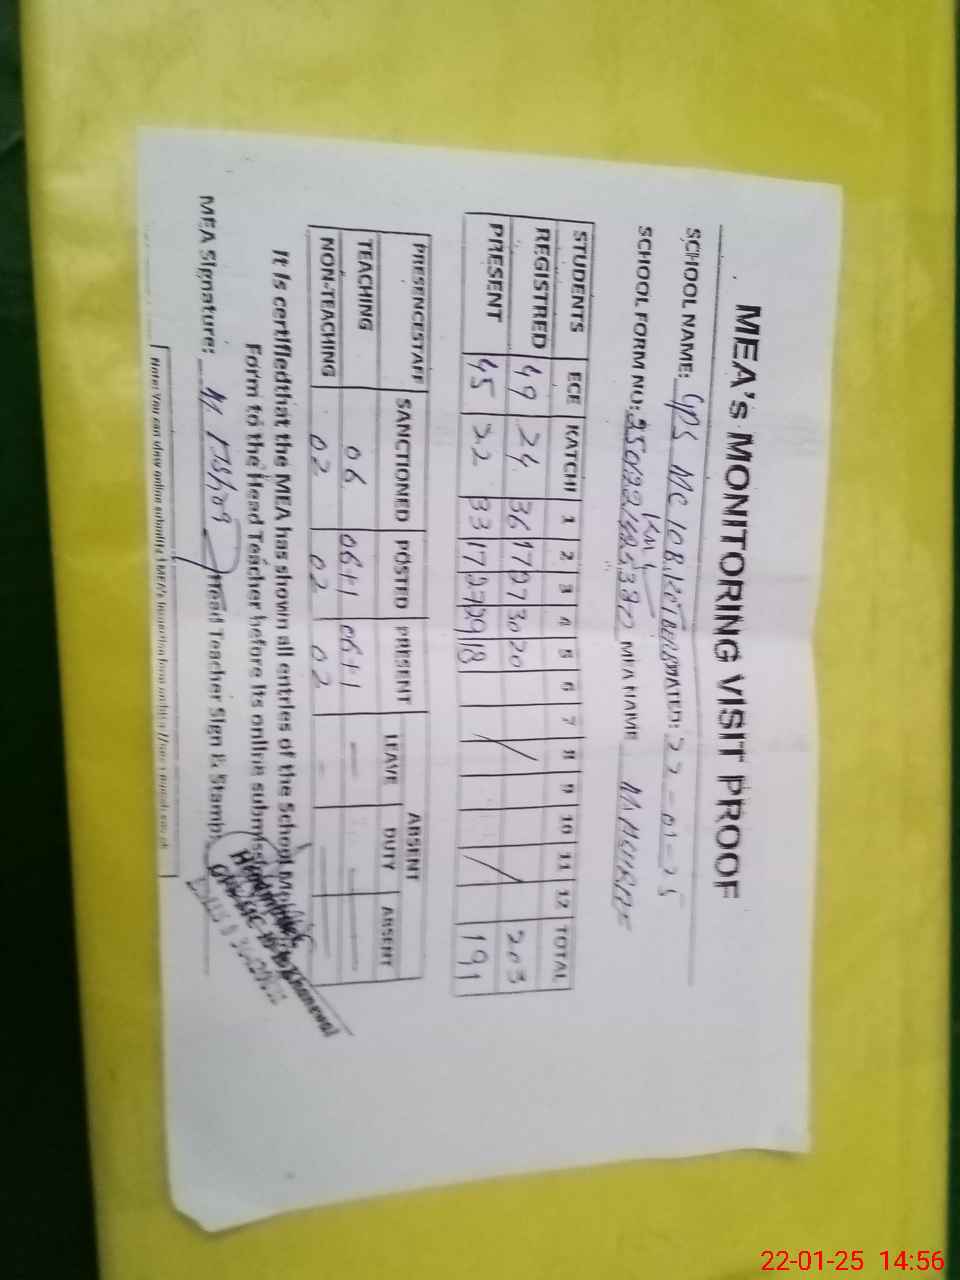 MEA's MONITORING VISIT PROOF
SCHOOL NAME: GPS MC 108, DATED: 22-01-25
KWL
SCHOOL FORM NO: MEA NAME M ASHRAF
STUDENTS ECE KATCHI 1 2 3 4 5 6 7 8 9 10 11 12 TOTAL
REGISTRED 49 24 36 17 27 30 20 203
PRESENT 45 22 33 17 27 29 18 191
PRESENCESTAFF SANCTIONED POSTED PRESENT ABSENT
LEAVE DUTY ABSENT
TEACHING 06 06+1 06+1 — — —
NON-TEACHING 02 02 02 — — —
It is certifiedthat the MEA has shown all entries of the School
Form to the Head Teacher before its online submiss
MEA Signature: M Ashraf Head Teacher Sign & Stamp:
Khanewal
Note: You can view online submitted MEA's
22-01-25 14:56